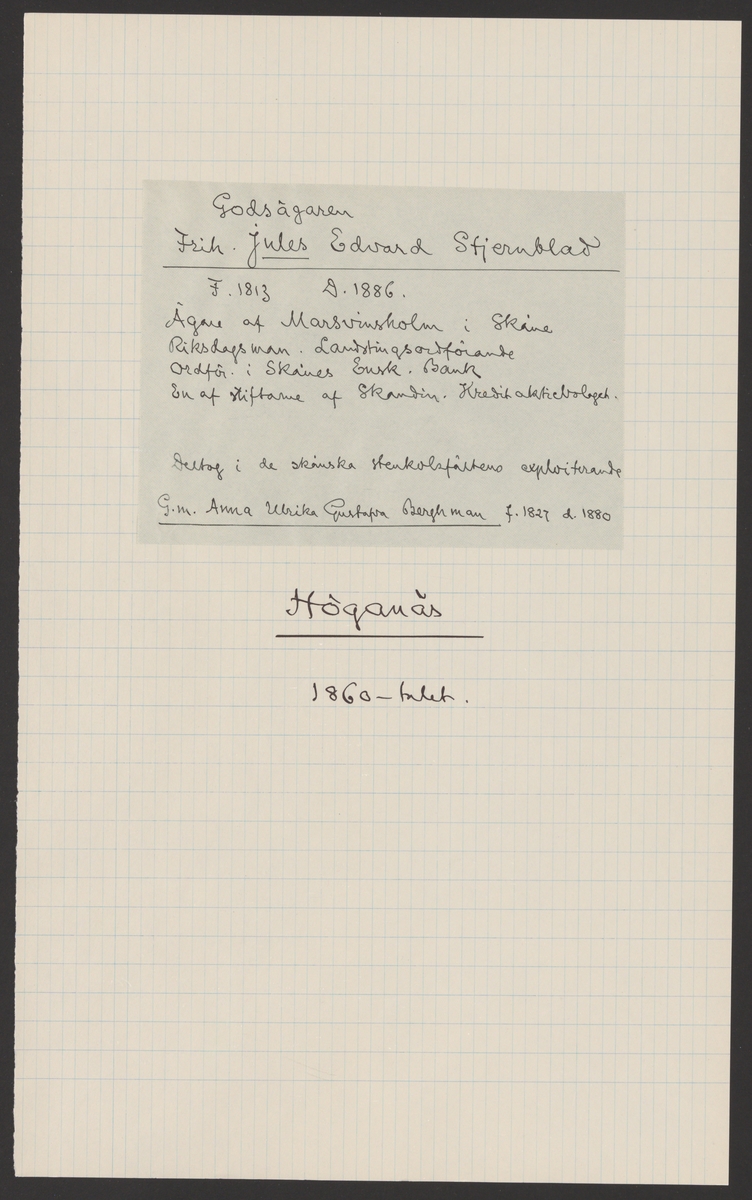 Godsägaren
Frih. Jules Edvard Stjernblad
F. 1813 D. 1886.
Ägare af Marsvinsholm i Skåne
Riksdagsman. Landstingsordförande
Ordför. i Skånes Ensk. Bank
En af stiftarne af Skandin. Kreditaktiebolaget.
Deltog i de skånska stenkolsfältens exploiterande
G.m. Anna Ulrika Gustafva Berghman f. 1827 d. 1880
Höganäs
1860–talet.